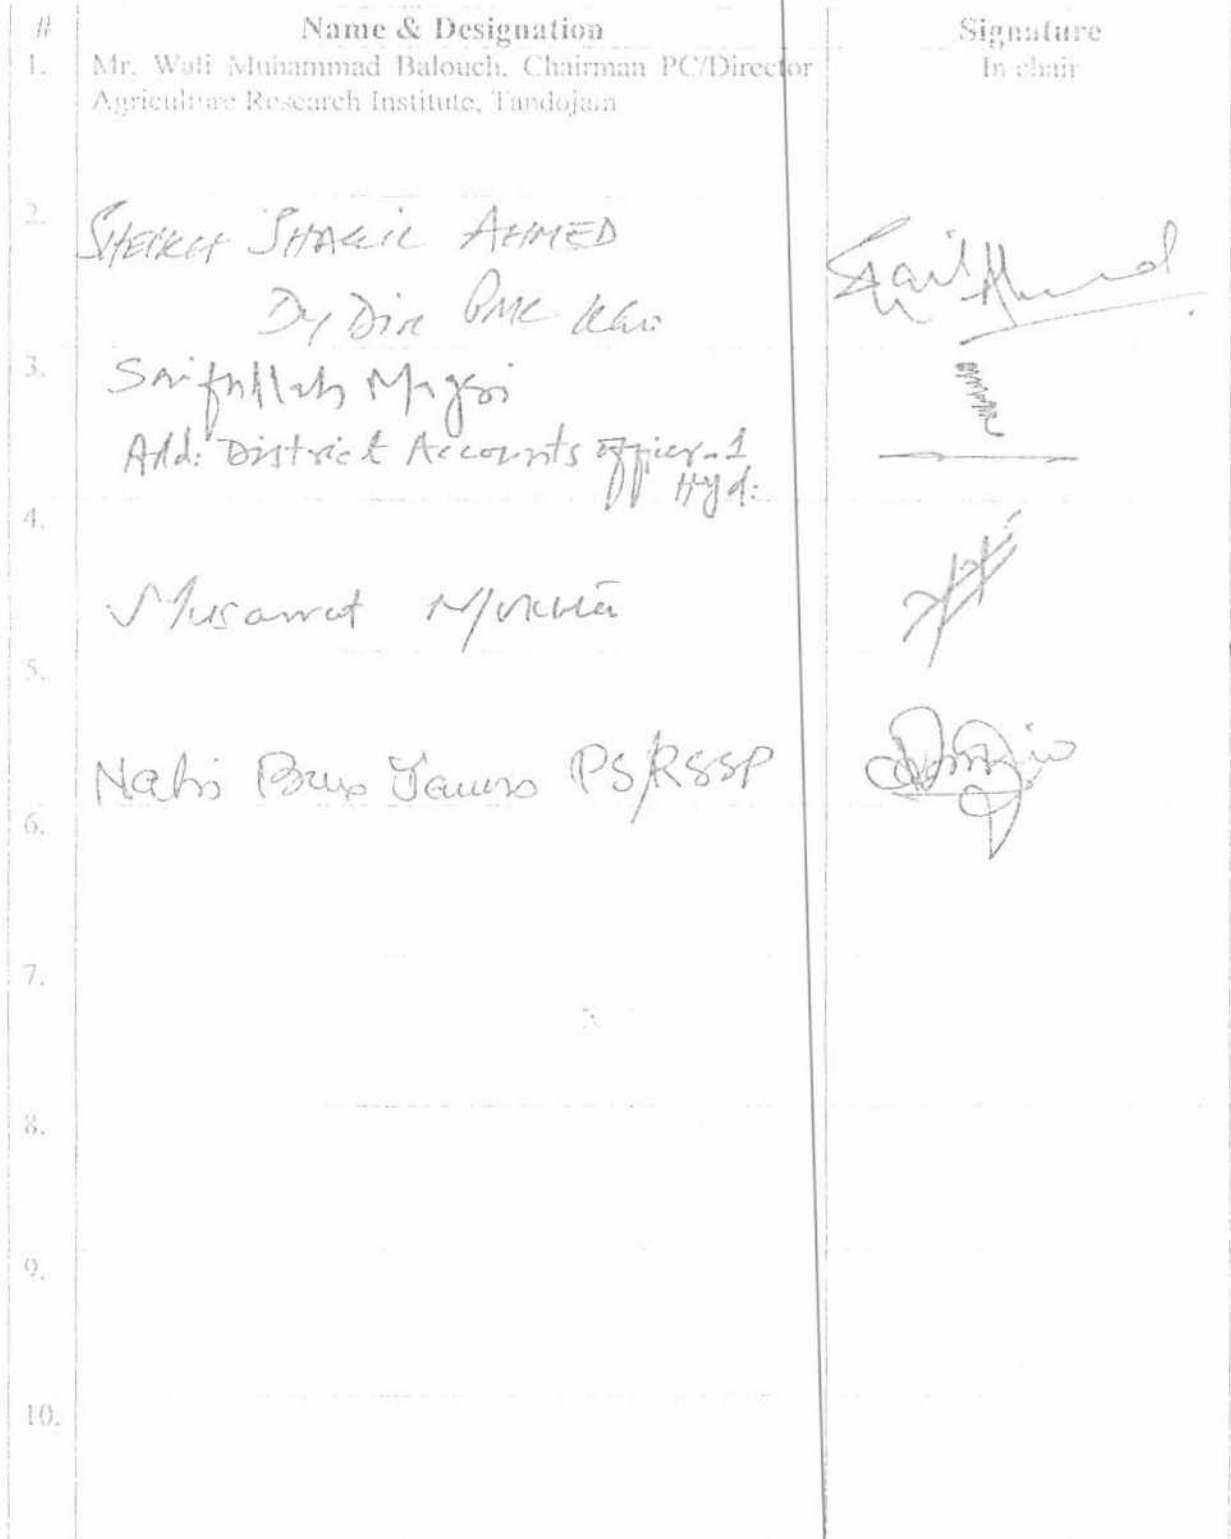 # Name & Designation Signature
1. Mr. Wali Muhammad Balouch, Chairman PC/Director In chair
Agriculture Research Institute, Tandojam
2.
SHEIKH SHAKIL AHMED
Dy Dir
3. Saifullah Magsi
Add: District Accounts officer-1
Hyd:
4.
Musarrat
5.
Nabi Bux PS/RSSP
6.
7.
8.
9.
10.